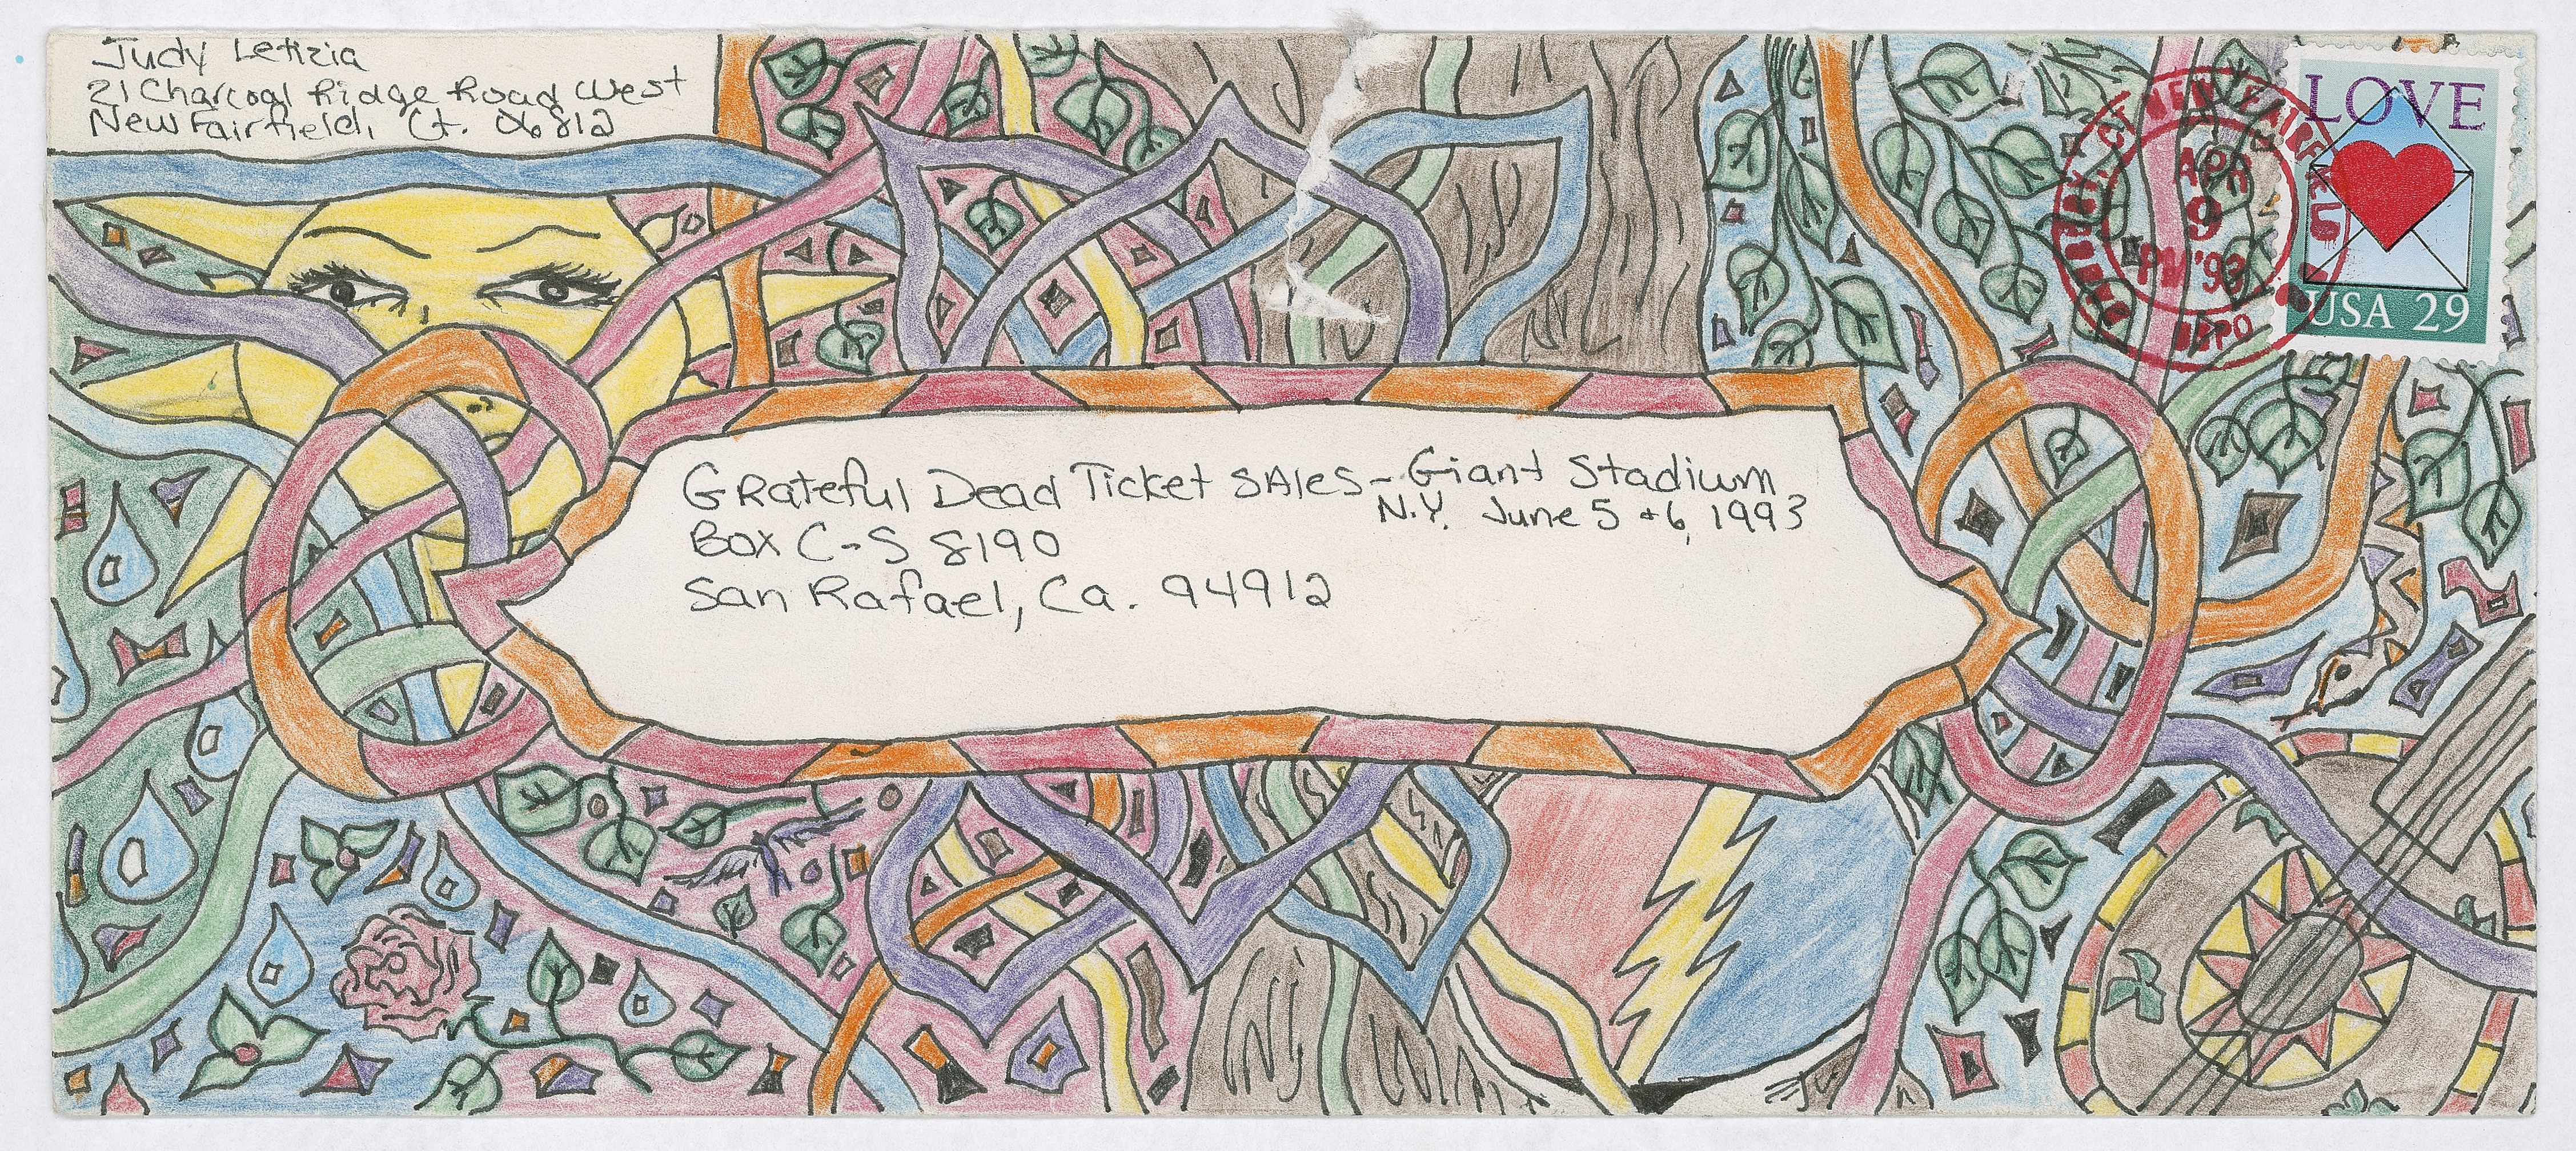 Judy Letizia
21 Charcoal Ridge Road West
New Fairfield, Ct. 06812
LOVE
USA 29
CT NEW FAIRFIELD
APR
9
PM '93
USPO
Grateful Dead Ticket SAles – Giant Stadium
N.Y. June 5 & 6, 1993
Box C-S 8190
San Rafael, Ca. 94912